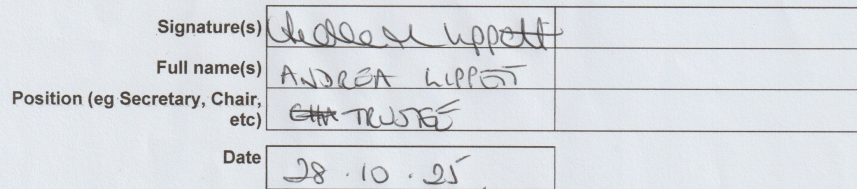 Signature(s)
Full name(s) ANDREA LIPPETT
Position (eg Secretary, Chair,
etc) TRUSTEE
Date 28.10.25